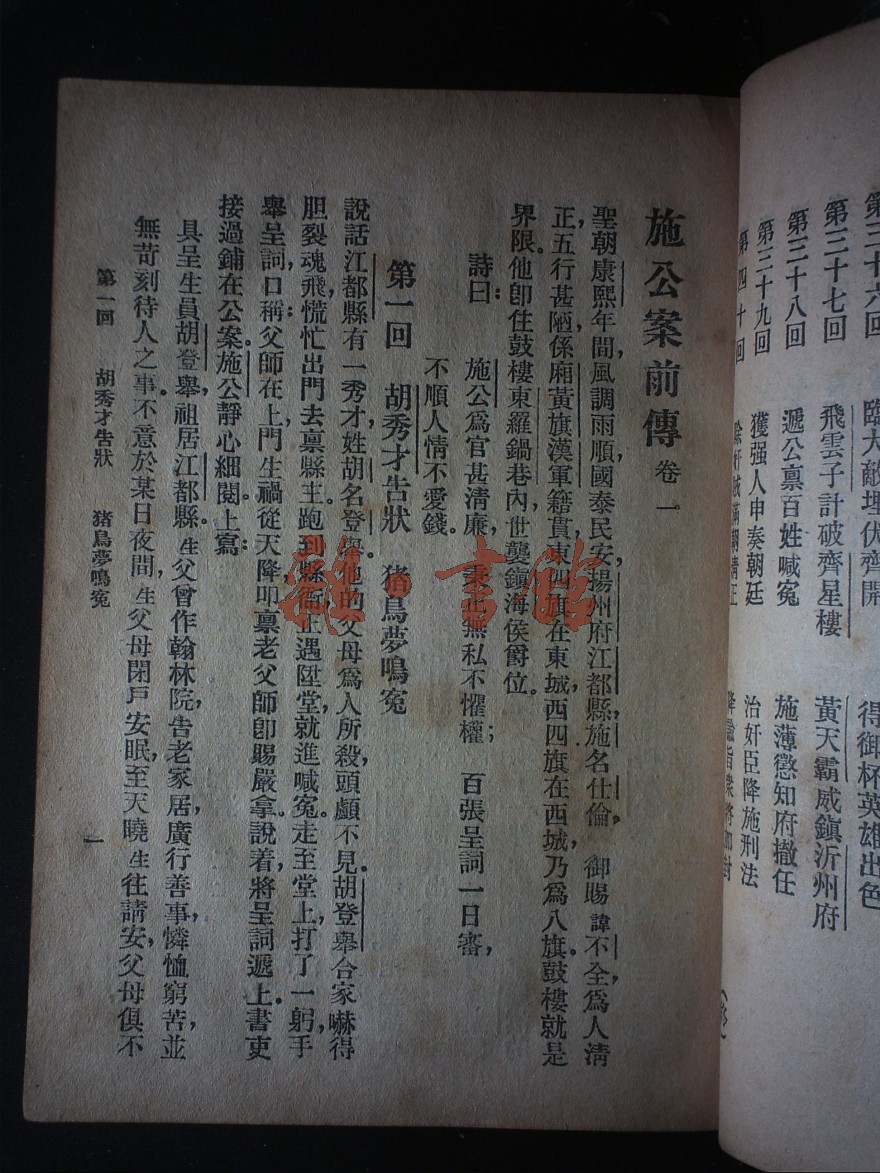 第三十六回　臨大敵埋伏齊開　得御杯英雄出色
第三十七回　飛雲子計破齊星樓　黃天霸威鎮沂州府
第三十八回　遞公禀百姓喊冤　施薄懲知府撤任
第三十九回　獲强人申奏朝廷　治奸臣降施刑法
第四十回　除奸賊滿朝清正
施公案前傳 卷一
聖朝康熙年間，風調雨順，國泰民安，揚州府江都縣，施名仕倫，御賜諱不全，爲人清
正，五行甚陋，係廂黃旗漢軍籍貫，東四旗在東城，西四旗在西城，乃爲八旗。鼓樓就是
界限。他卽住鼓樓東羅鍋巷內，世襲鎮海侯爵位。
詩曰：　施公爲官甚清廉，　秉正無私不懼權；　百張呈詞一日審，
不順人情不愛錢。
第一回　胡秀才告狀　猪鳥夢鳴冤
說話江都縣有一秀才，姓胡名登舉。他的父母爲人所殺，頭顱不見。胡登舉合家嚇得
胆裂魂飛，慌忙出門去禀縣主。跑到縣衙，正遇陞堂，就進喊冤。走至堂上，打了一躬，手
舉呈詞，口稱：父師在上，門生禍從天降，叩禀老父師卽賜嚴拿。說着，將呈詞遞上。書吏
接過，鋪在公案。施公靜心細閱，上寫：
具呈生員胡登舉，祖居江都縣。生父曾作翰林院，告老家居，廣行善事，憐恤窮苦，並
無苛刻待人之事。不意於某日夜間，生父母閉戶安眠，至天曉，生往請安，父母俱不
第一回　胡秀才告狀　猪鳥夢鳴冤
一
雜·書館